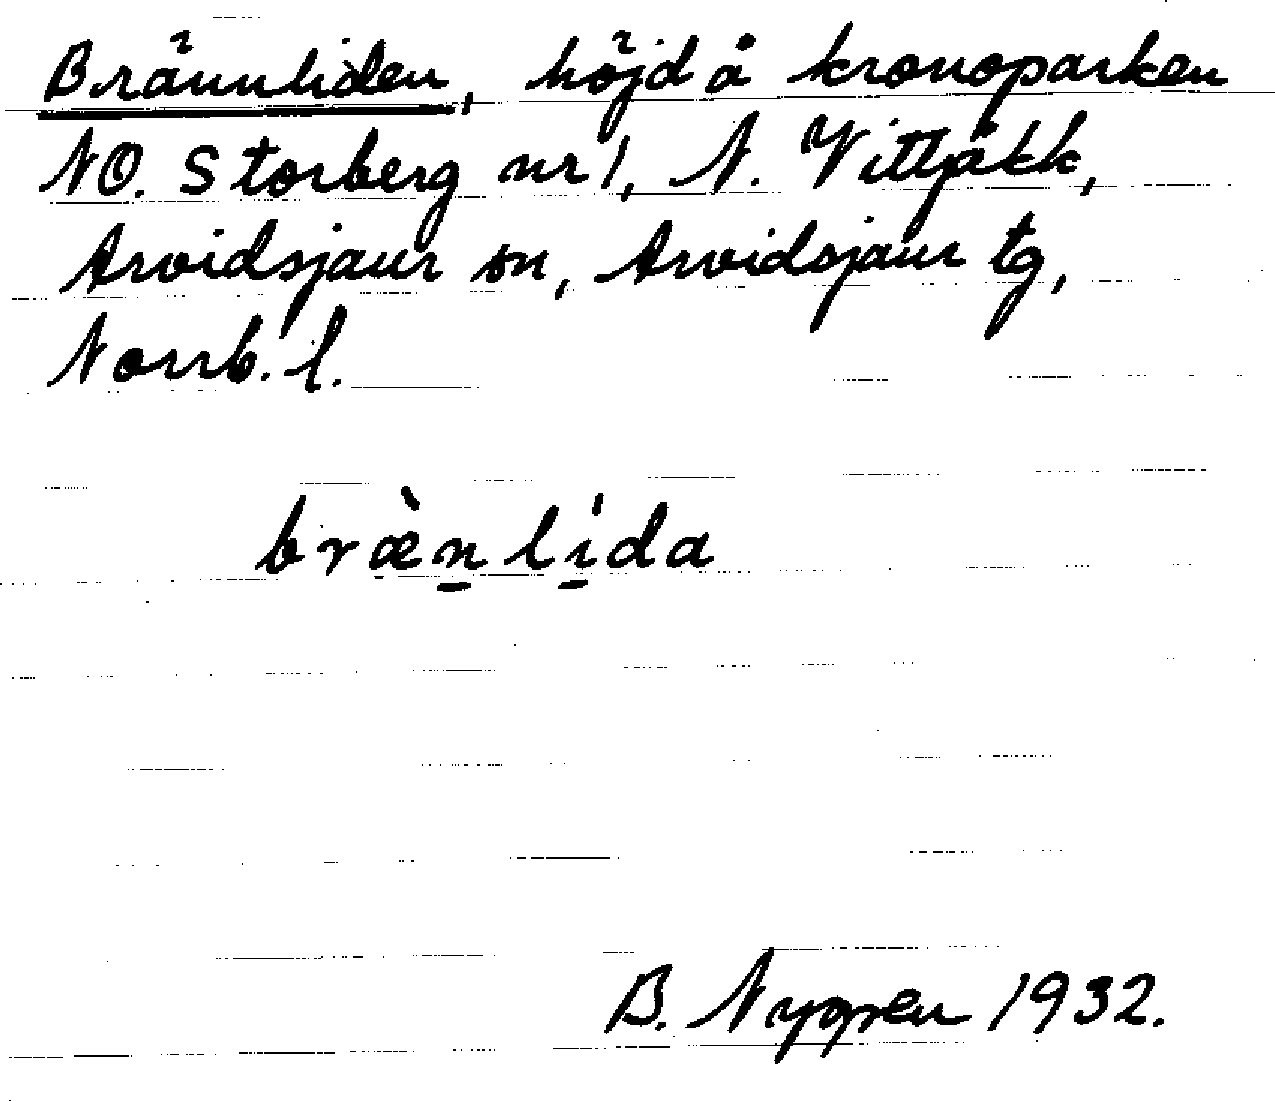 Brännliden, höjd å kronoparken
NO. Storberg nr 1, N. Vittjåkk,
Arvidsjaur sn, Arvidsjaur tg,
Norrb. l.
bræ̀n̲lí̲da
B. Nyqpen 1932.